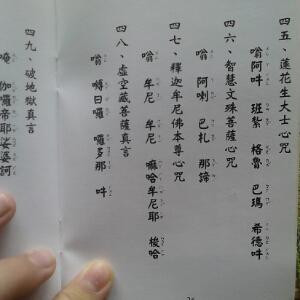 四五、蓮花生大士心咒
嗡阿吽 班紮 格魯 巴瑪 希德吽
四六、智慧文殊菩薩心咒
嗡 阿喇 巴札 那諦
四七、釋迦牟尼佛本尊心咒
嗡 牟尼 牟尼 嘛哈牟尼耶 梭哈
四八、虛空藏菩薩真言
嗡 嚩日囉 囉多那 吽
四九、破地獄真言
唵 伽囉帝耶娑婆訶